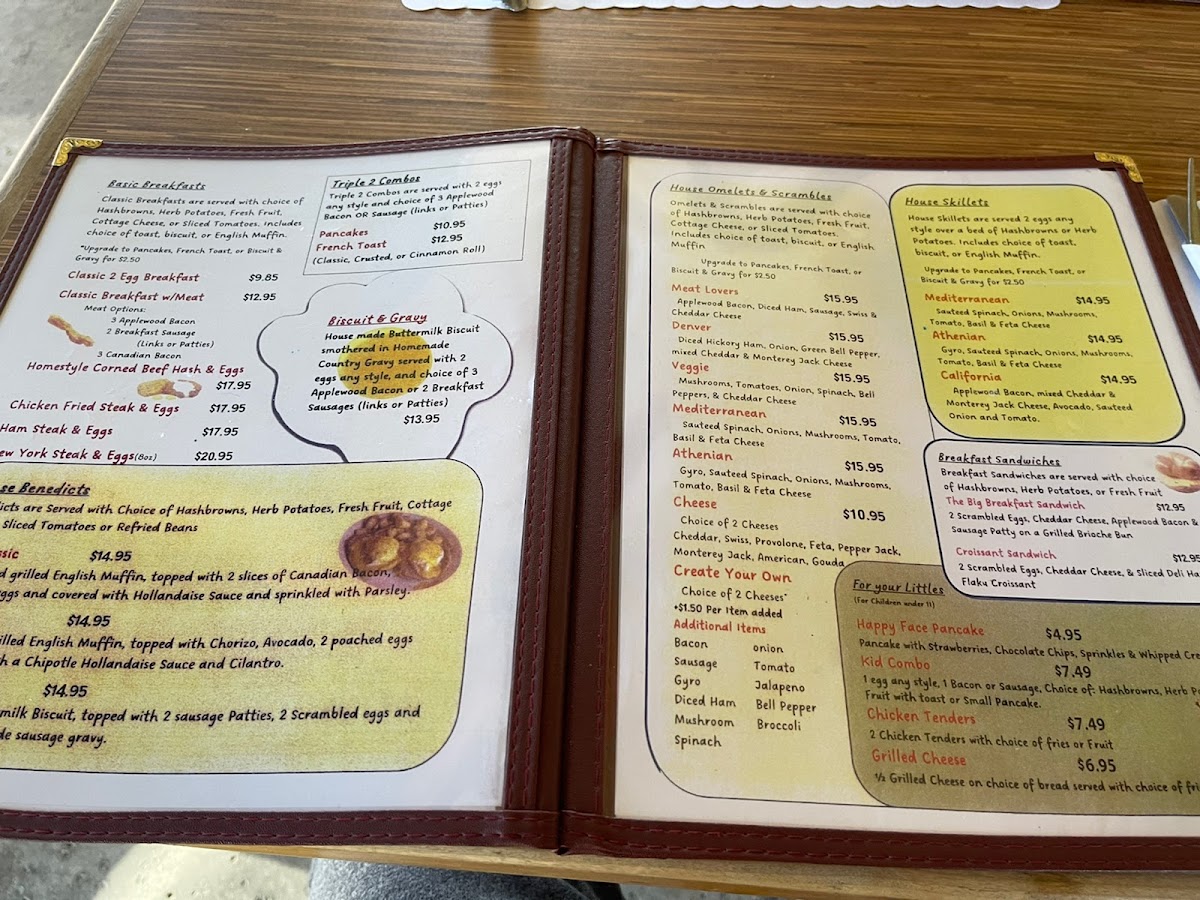 Basic Breakfasts
Classic Breakfasts are served with choice of
Hashbrowns, Herb Potatoes, Fresh Fruit,
Cottage Cheese, or Sliced Tomatoes. Includes
choice of toast, biscuit, or English Muffin.
*Upgrade to Pancakes, French Toast, or Biscuit &
Gravy for $2.50
Classic 2 Egg Breakfast $9.85
Classic Breakfast w/Meat $12.95
Meat Options:
3 Applewood Bacon
2 Breakfast Sausage
(Links or Patties)
3 Canadian Bacon
Homestyle Corned Beef Hash & Eggs
$17.95
Chicken Fried Steak & Eggs $17.95
Ham Steak & Eggs $17.95
ew York Steak & Eggs(8oz) $20.95
Triple 2 Combos
Triple 2 Combos are served with 2 eggs
any style and choice of 3 Applewood
Bacon OR Sausage (links or Patties)
Pancakes $10.95
French Toast $12.95
(Classic, Crusted, or Cinnamon Roll)
Biscuit & Gravy
House made Buttermilk Biscuit
smothered in Homemade
Country Gravy served with 2
eggs any style, and choice of 3
Applewood Bacon or 2 Breakfast
Sausages (links or Patties)
$13.95
se Benedicts
dicts are Served with Choice of Hashbrowns, Herb Potatoes, Fresh Fruit, Cottage
Sliced Tomatoes or Refried Beans
ssic $14.95
d grilled English Muffin, topped with 2 slices of Canadian Bacon,
ggs and covered with Hollandaise Sauce and sprinkled with Parsley.
$14.95
illed English Muffin, topped with Chorizo, Avocado, 2 poached eggs
h a Chipotle Hollandaise Sauce and Cilantro.
$14.95
milk Biscuit, topped with 2 sausage Patties, 2 Scrambled eggs and
de sausage gravy.
House Omelets & Scrambles
Omelets & Scrambles are served with choice
of Hashbrowns, Herb Potatoes, Fresh Fruit,
Cottage Cheese, or Sliced Tomatoes.
Includes choice of toast, biscuit, or English
Muffin
Upgrade to Pancakes, French Toast, or
Biscuit & Gravy for $2.50
Meat Lovers $15.95
Applewood Bacon, Diced Ham, Sausage, Swiss &
Cheddar Cheese
Denver $15.95
Diced Hickory Ham, Onion, Green Bell Pepper,
mixed Cheddar & Monterey Jack Cheese
Veggie $15.95
Mushrooms, Tomatoes, Onion, Spinach, Bell
Peppers, & Cheddar Cheese
Mediterranean $15.95
Sauteed Spinach, Onions, Mushrooms, Tomato,
Basil & Feta Cheese
Athenian $15.95
Gyro, Sauteed Spinach, Onions, Mushrooms,
Tomato, Basil & Feta Cheese
Cheese $10.95
Choice of 2 Cheeses
Cheddar, Swiss, Provolone, Feta, Pepper Jack,
Monterey Jack, American, Gouda
Create Your Own
Choice of 2 Cheeses*
+$1.50 Per Item added
Additional Items
Bacon onion
Sausage Tomato
Gyro Jalapeno
Diced Ham Bell Pepper
Mushroom Broccoli
Spinach
House Skillets
House Skillets are served 2 eggs any
style over a bed of Hashbrowns or Herb
Potatoes. Includes choice of toast,
biscuit, or English Muffin.
Upgrade to Pancakes, French Toast, or
Biscuit & Gravy for $2.50
Mediterranean $14.95
Sauteed Spinach, Onions, Mushrooms,
Tomato, Basil & Feta Cheese
Athenian $14.95
Gyro, Sauteed Spinach, Onions, Mushrooms,
Tomato, Basil & Feta Cheese
California $14.95
Applewood Bacon, mixed Cheddar &
Monterey Jack Cheese, Avocado, Sauteed
Onion and Tomato.
Breakfast Sandwiches
Breakfast Sandwiches are served with choice
of Hashbrowns, Herb Potatoes, or Fresh Fruit
The Big Breakfast Sandwich $12.95
2 Scrambled Eggs, Cheddar Cheese, Applewood Bacon &
Sausage Patty on a Grilled Brioche Bun
Croissant Sandwich $12.95
2 Scrambled Eggs, Cheddar Cheese, & Sliced Deli Ha
Flaku Croissant
For your Littles
(For Children under 11)
Happy Face Pancake $4.95
Pancake with Strawberries, Chocolate Chips, Sprinkles & Whipped Cre
Kid Combo $7.49
1 egg any style, 1 Bacon or Sausage, Choice of: Hashbrowns, Herb P
Fruit with toast or Small Pancake.
Chicken Tenders $7.49
2 Chicken Tenders with choice of fries or Fruit
Grilled Cheese $6.95
½ Grilled Cheese on choice of bread served with choice of fri